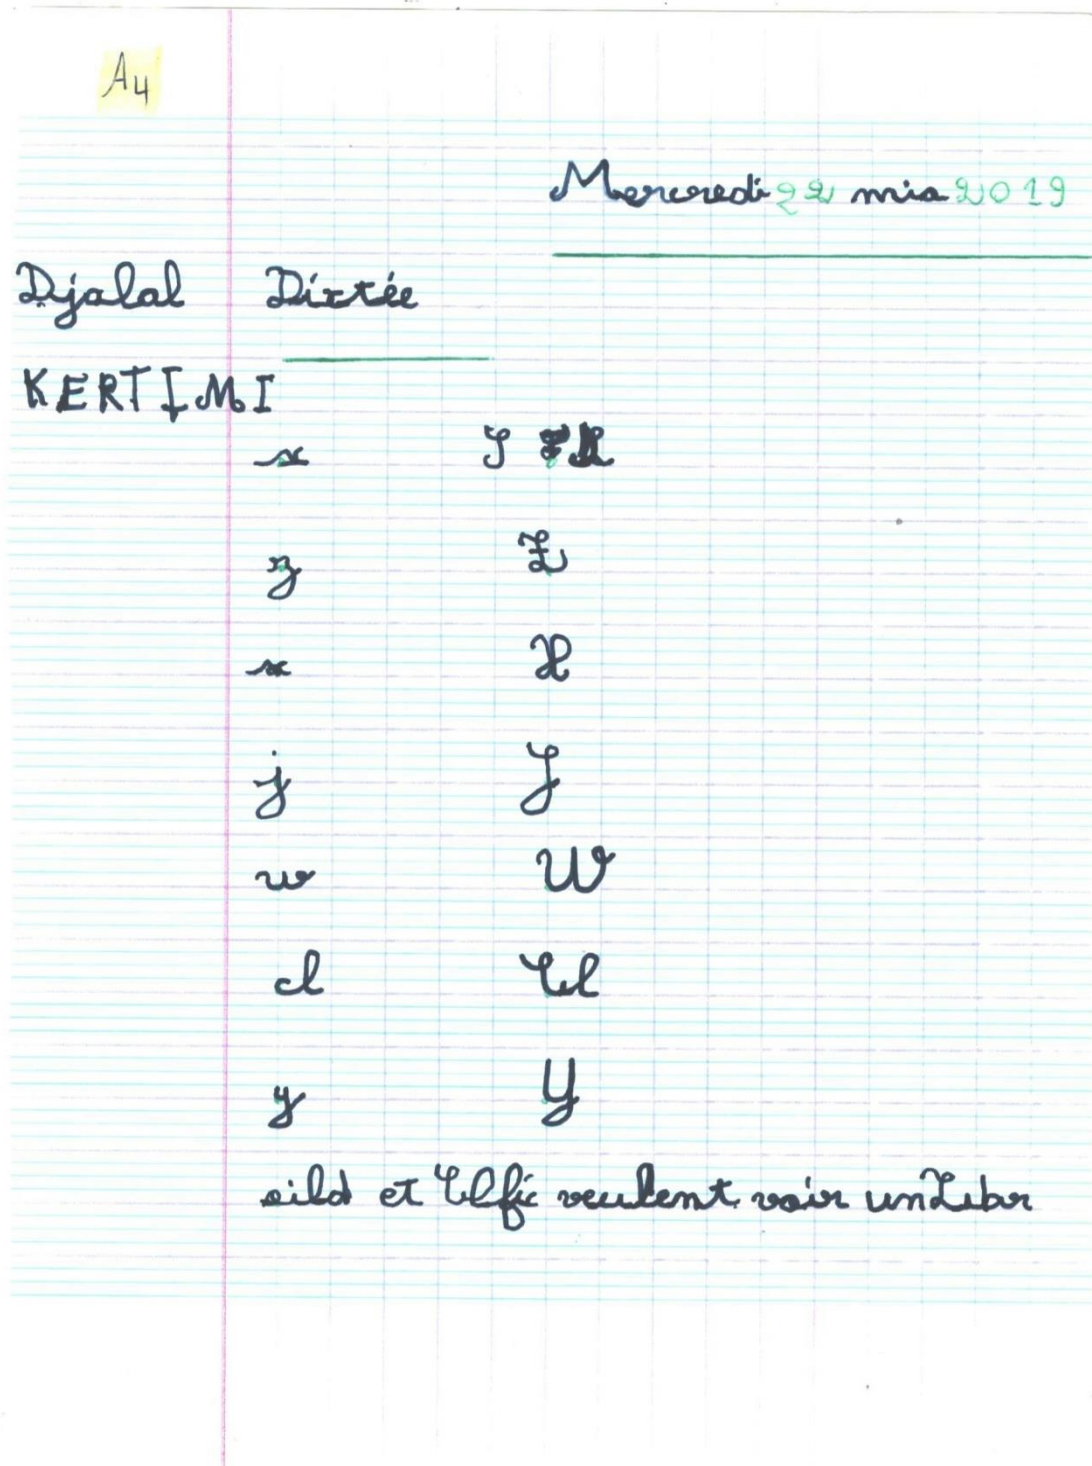 A4
Mercredi 22 mia 2019
Djalal Dixtée
KERTIMI
x J
z Z
x X
j J
w W
cl Ul
y Y
eild et Ulfic veulent voir un Zebr